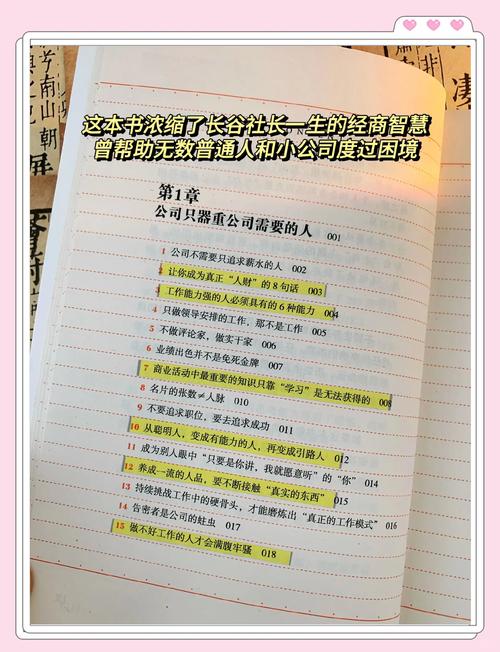 兮南山朝
凄
非
这本书浓缩了长谷社长一生的经商智慧
曾帮助无数普通人和小公司度过困境
第1章
公司只器重公司需要的人 001
1 公司不需要只追求薪水的人 002
2 让你成为真正“人财”的8句话 003
3 工作能力强的人必须具有的6种能力 004
4 只做领导安排的工作，那不是工作 005
5 不做评论家，做实干家 006
6 业绩出色并不是免死金牌 007
7 商业活动中最重要的知识只靠“学习”是无法获得的 008
8 名片的张数≠人脉 010
9 不要追求职位，要去追求成功 011
10 从聪明人，变成有能力的人，再变成引路人 012
11 成为别人眼中“只要是你讲，我就愿意听”的“你” 014
12 养成一流的人品，要不断接触“真实的东西” 015
13 持续挑战工作中的硬骨头，才能磨炼出“真正的工作模式” 016
14 告密者是公司的蛀虫 017
15 做不好工作的人才会满腹牢骚 018